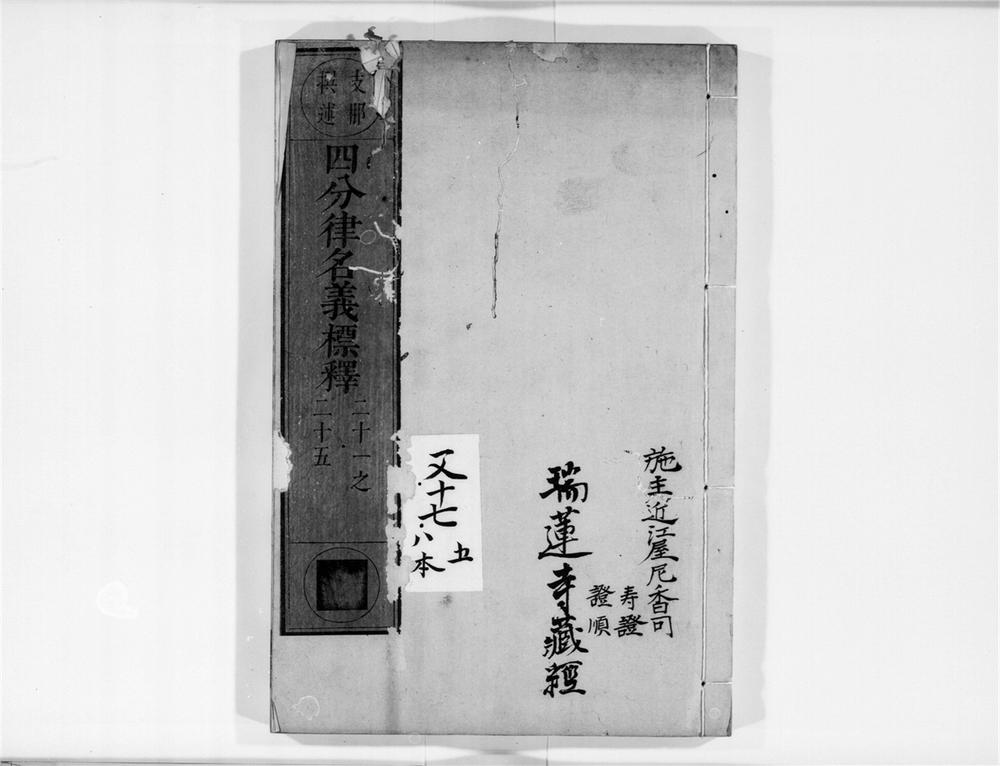 施主近江屋尼香司
寿證
證順
瑞蓮寺藏經
又十七
八本
五
支那
撰述
四分律名義標釋
二十一之
二十五